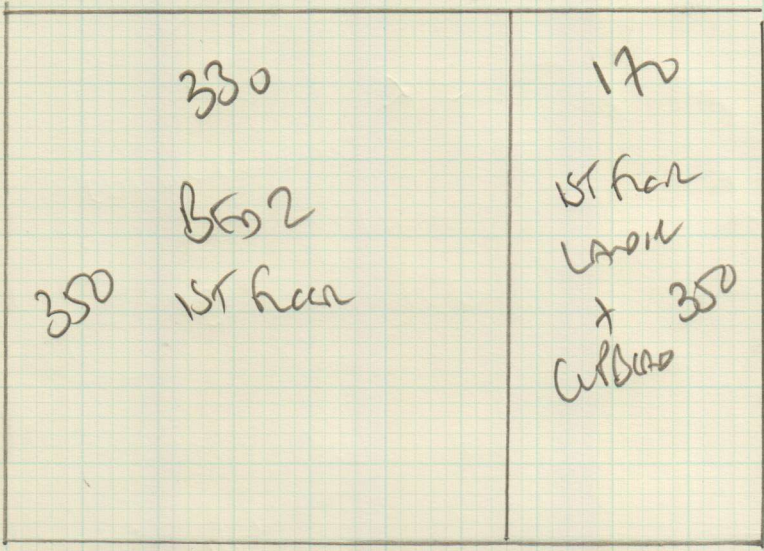 330
BED 2
350 1ST FLOOR
170
1ST FLOOR
LANDIN
+ 350
CUPBOARD